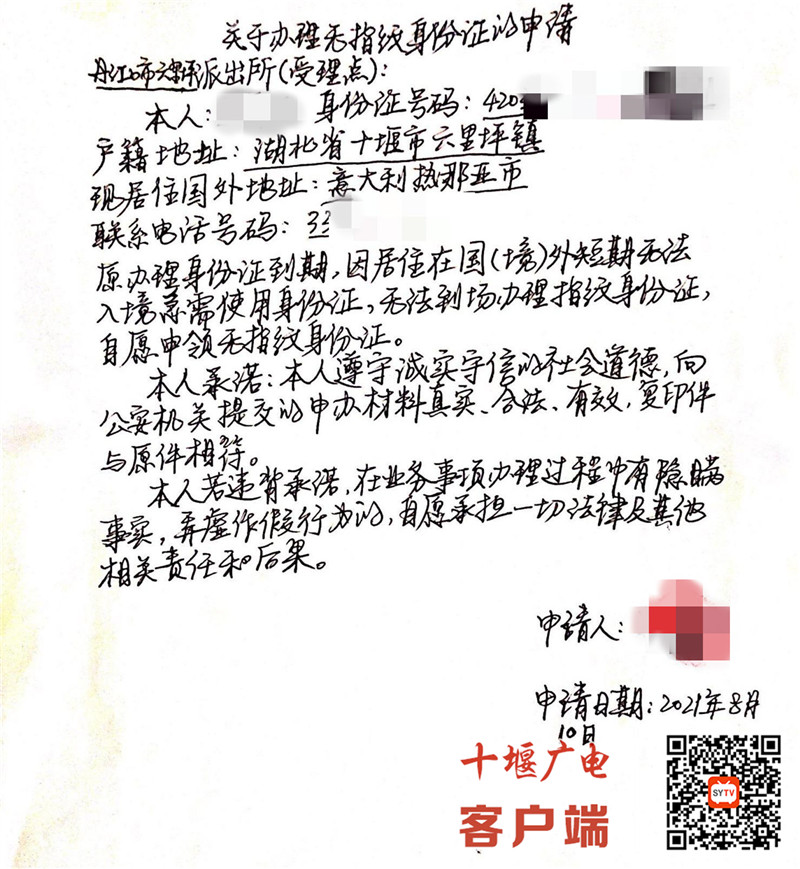 关于办理无指纹身份证的申请
丹江口市六里坪派出所(受理点):
本人: 身份证号码: 420
户籍地址: 湖北省十堰市六里坪镇
现居住国外地址: 意大利热那亚市
联系电话号码: 33
原办理身份证到期, 因居住在国(境)外短期无法
入境急需使用身份证, 无法到场办理指纹身份证,
自愿申领无指纹身份证。
本人承诺: 本人遵守诚实守信的社会道德, 向
公安机关提交的申办材料真实、合法、有效, 复印件
与原件相符。
本人若违背承诺, 在业务事项办理过程中有隐瞒
事实, 弄虚作假行为的, 自愿承担一切法律及其他
相关责任和后果。
申请人:
申请日期: 2021年8月
10日
十堰广电
客户端
SYTV